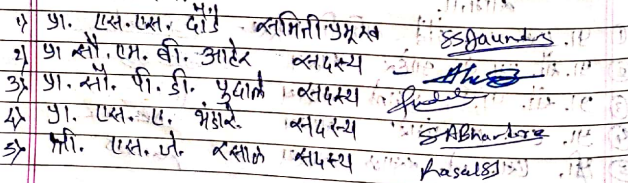 १) प्रा. एस.एस. दौंडे समिती प्रमुख
२) प्रा सौ. एम. बी. आहेर सदस्य -
३) प्रा. सौ. पी. डी. पुदाले सदस्य
४) प्रा. एस. ए. भंडारे. सदस्य SABhandare
५) श्री. एस. जे. रसाळ सदस्य Rasal SJ